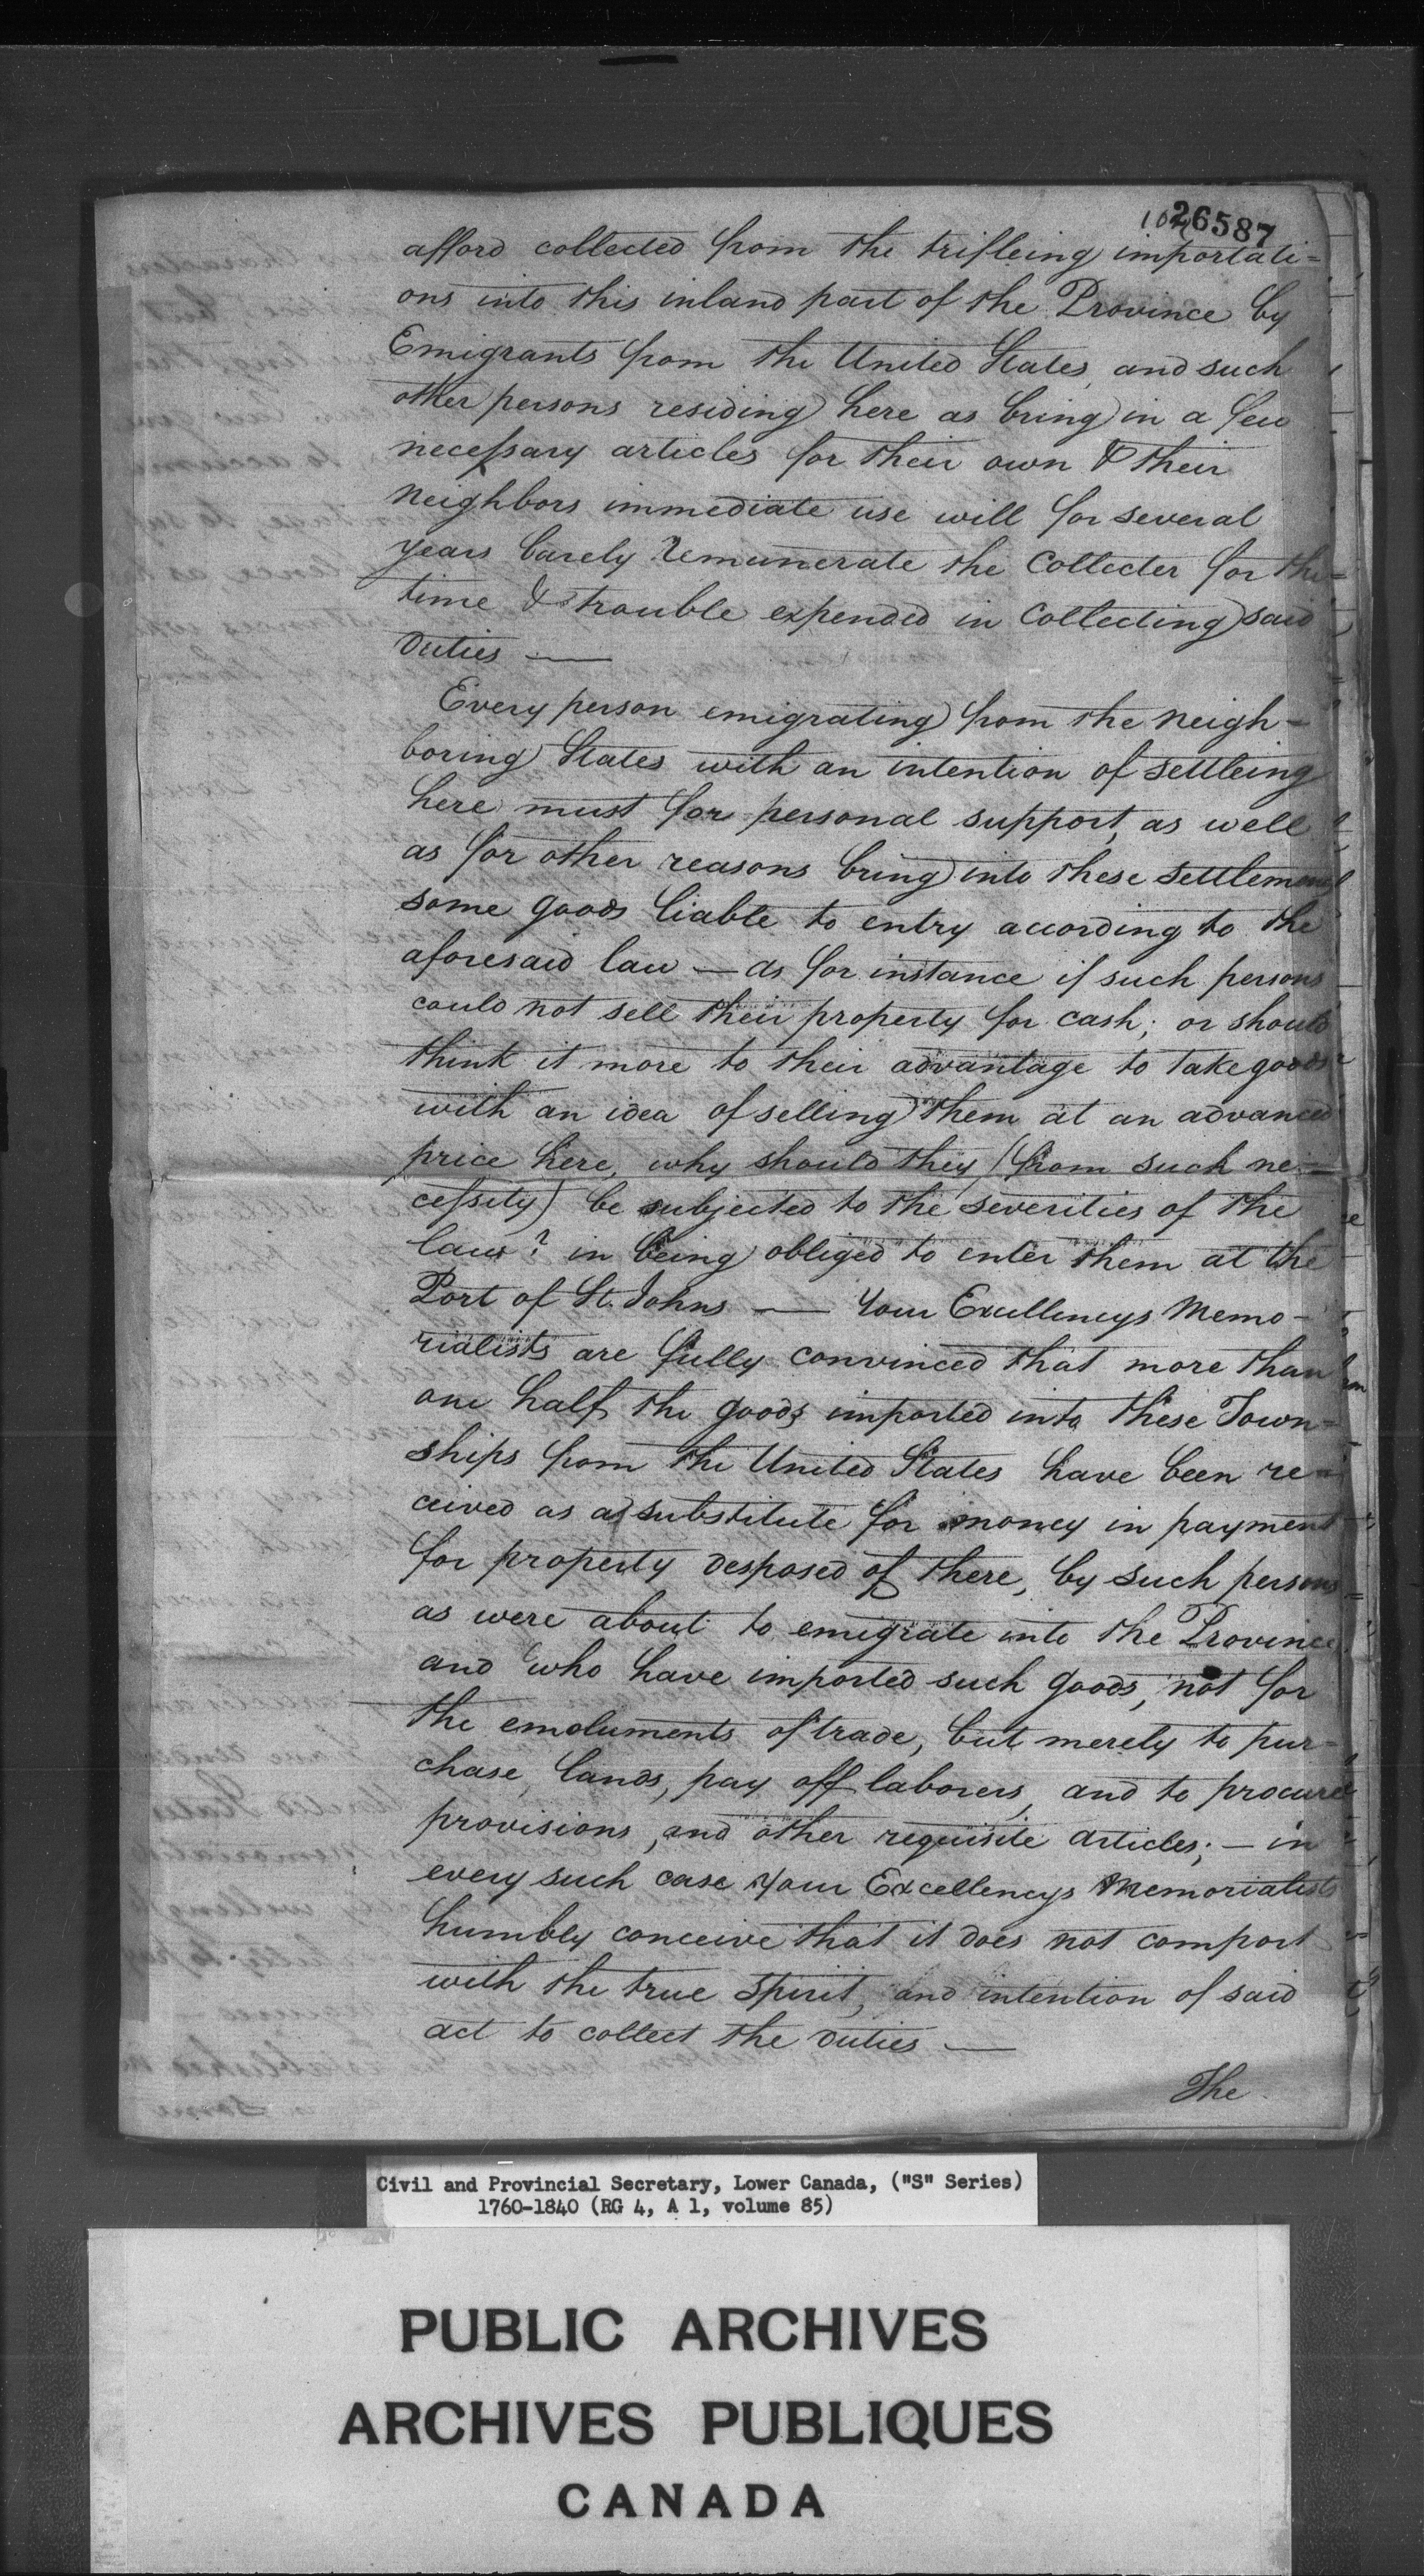 26587
afford collected from the trifleing importati=
ons into this inland part of the Province by
Emigrants from the United States, and such
other persons residing here as bring in a few
necessary articles for their own & their
neighbors immediate use will for several
years barely remunerate the Collecter for the
time & trouble expended in Collecting said
Duties —
Every person emigrating from the neigh-
boring States with an intention of settleing
here must for personal support, as well
as for other reasons bring into these settlements
some goods liable to entry according to the
aforesaid law — as for instance if such persons
could not sell their property for cash; or should
think it more to their advantage to take goods
with an idea of selling them at an advanced
price here, why should they (from such ne-
cessity) be subjected to the severities of the
law? in being obliged to enter them at the
Port of St. Johns — Your Excellencys Memo-
rialists are fully convinced that more than
one half the goods imported into these Town=
ships from the United States have been re=
ceived as a substitute for money in payment
for property desposed of there, by such persons
as were about to emigrate into the Province
and who have imported such goods, not for
the emoluments of trade, but merely to pur-
chase Lands, pay off laborers, and to procure
provisions, and other requisite articles; — in
every such case Your Excellencys Memorialists
humbly conceive that it does not comport
with the true spirit, and intention of said
act to collect the duties —
The
Civil and Provincial Secretary, Lower Canada, ("S" Series)
1760-1840 (RG 4, A 1, volume 85)
PUBLIC ARCHIVES
ARCHIVES PUBLIQUES
CANADA